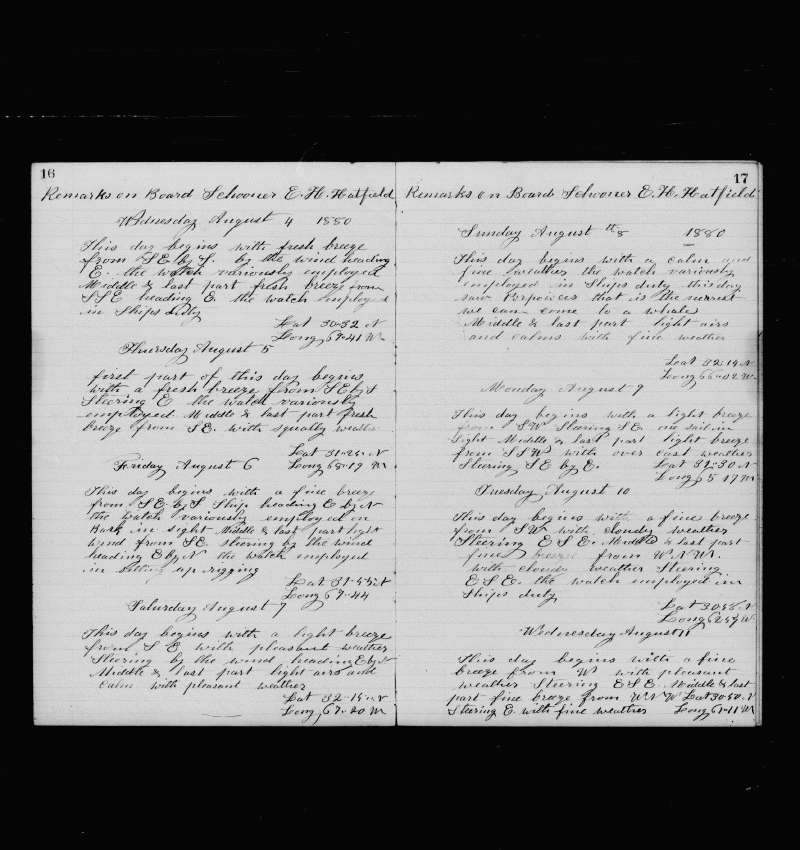 16
Remarks on Board Schooner E. H. Hatfield
Wednesday August 4 1880
This day begins with fresh breeze
from SE by S. by the wind heading
E. the watch variously employed
Middle & last part fresh breeze from
SSE heading E the watch employed
in Ships duty
Lat 30-32 N
Long 69-41 W
Thursday August 5
first part of this day begins
with a fresh breeze from SE by S
Steering E the watch variously
employed Middle & last part fresh
breeze from SE. with squally weather
Lat 31-24 N
Long 68-19 W
Friday August 6
This day begins with a fine breeze
from SE by S Ship heading E by N
the watch variously employed on
Bark in sight Middle & last part light
wind from SE steering by the wind
heading E by N the watch employed
in setting up rigging
Lat 31-55 N
Long 67-44
Saturday August 7
This day begins with a light breeze
from S E with pleasant weather
Steering by the wind heading E by N
Middle & last part light airs and
calm with pleasant weather
Lat 32-15 N
Long 67-20 W
17
Remarks on Board Schooner E. H. Hatfield
Sunday August th 8 1880
This day begins with a calm and
fine weather the watch variously
employed in Ships duty this day
saw Porpoices that is the nearest
we can come to a whale
Middle & last part light airs
and calms with fine weather
Lat 32-19 N
Long 66-02 W
Monday August 9
This day begins with a light breeze
from SW Steering SE one sail in
Sight Middle & last part light breeze
from SSW with over cast weather
Steering SE by E. Lat 31-30 N
Long 5 17 W
Tuesday August 10
This day begins with a fine breeze
from SW with cloudy weather
Steering E S E. Middle & last part
fine breeze from W N W.
with cloudy weather Steering
E S E. the watch employed in
Ships duty
Lat 30 58 N
Long 62 59 W
Wednesday August 11
This day begins with a fine
breeze from W with pleasant
weather Steering E S E. Middle & last
part fine breeze from W N W Lat 30-50 N
Steering E. with fine weather Long 61-11 W